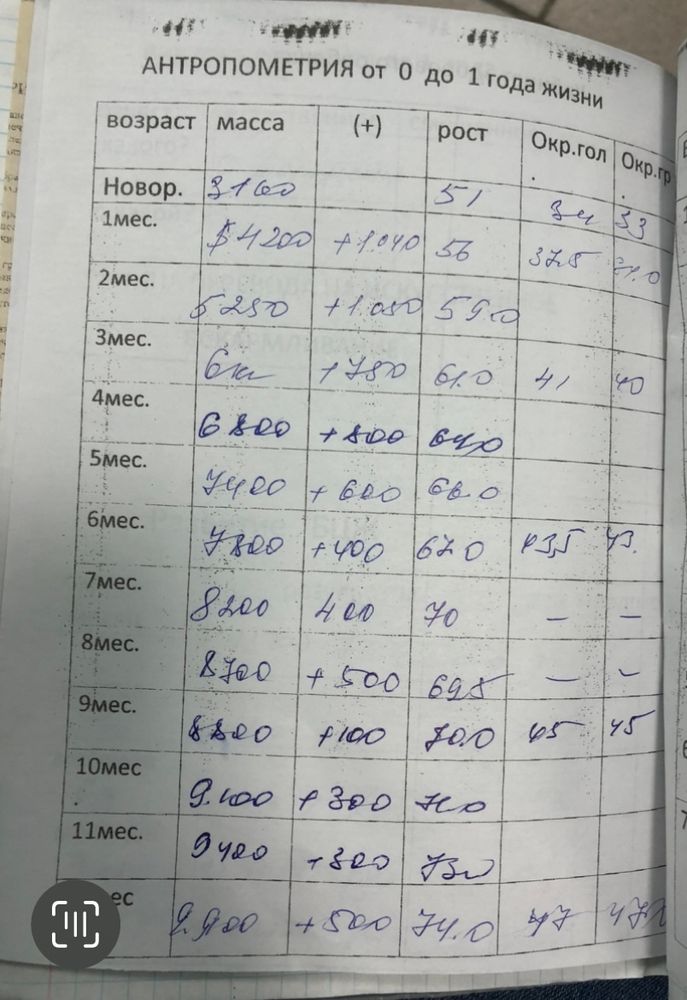 АНТРОПОМЕТРИЯ от 0 до 1 года жизни
возраст масса (+) рост Окр.гол. Окр.гр.
Новор. 3160 51 34 33
1мес. 4200 +1.040 56 37.5
2мес. 5250 +1.050 59.0
3мес. 6кг +750 61.0 41 40
4мес. 6800 +800 64.0
5мес. 7400 +600 66.0
6мес. 7800 +400 67.0 43,5 43.
7мес. 8200 400 70 – –
8мес. 8700 +500 69.5 – –
9мес. 8800 +100 70.0 45 45
10мес. 9.100 +300 71.0
11мес. 9400 +300 73.0
мес 9.900 +500 74.0 47 47